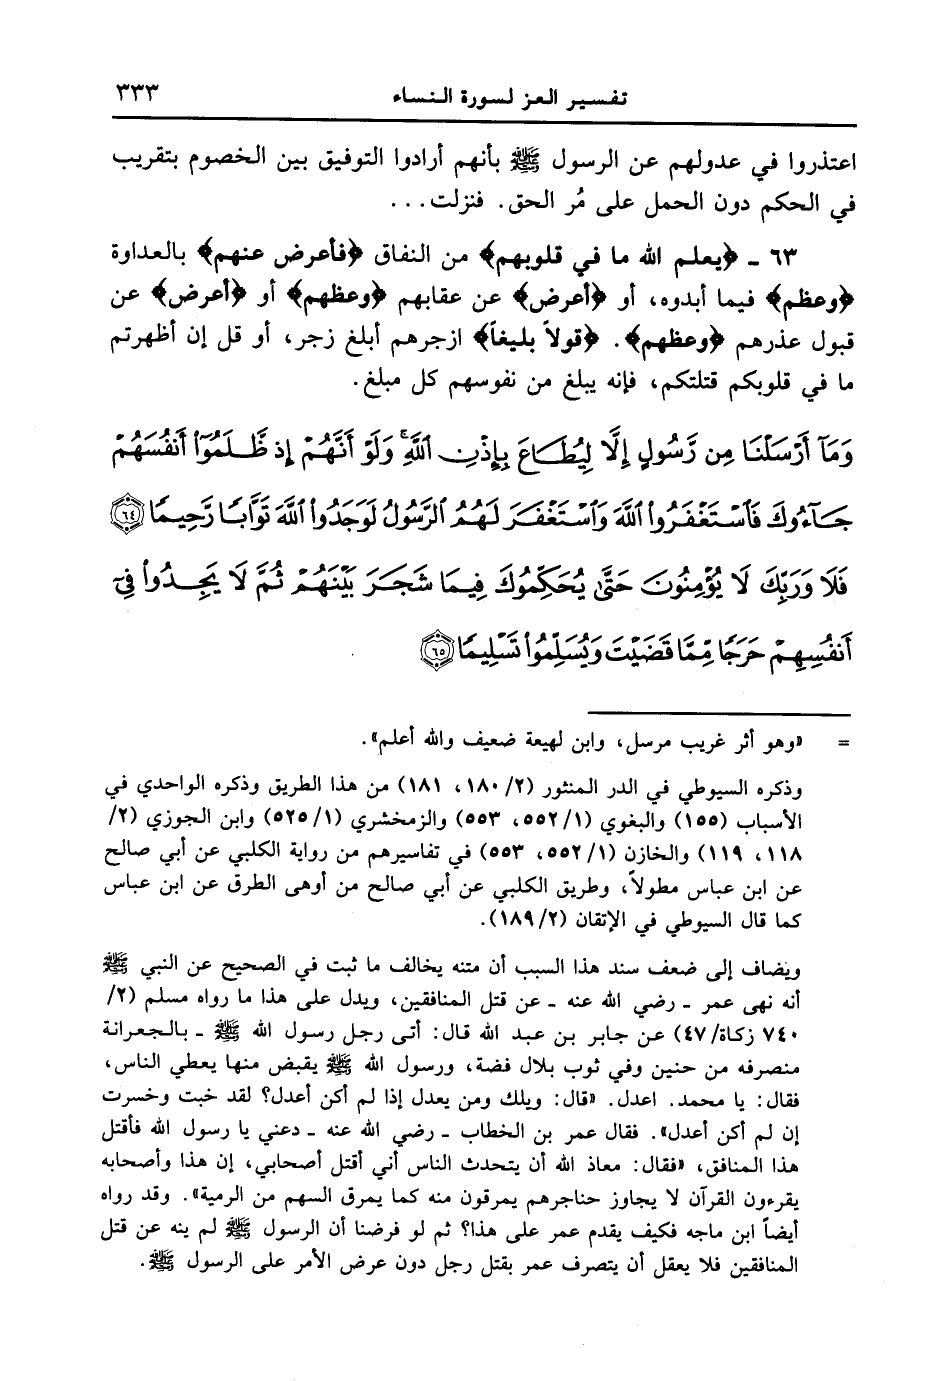 تفسير العز لسورة النساء ٣٣٣
اعتذروا في عدولهم عن الرسول ﷺ بأنهم أرادوا التوفيق بين الخصوم بتقريب
في الحكم دون الحمل على مُر الحق. فنزلت...
٦٣ ـ ﴿يعلم الله ما في قلوبهم﴾ من النفاق ﴿فأعرض عنهم﴾ بالعداوة
﴿وعظم﴾ فيما أبدوه، أو ﴿أعرض﴾ عن عقابهم ﴿وعظهم﴾ أو ﴿أعرض﴾ عن
قبول عذرهم ﴿وعظهم﴾. ﴿قولاً بليغاً﴾ ازجرهم أبلغ زجر، أو قل إن أظهرتم
ما في قلوبكم قتلتكم، فإنه يبلغ من نفوسهم كل مبلغ.
وَمَآ أَرْسَلْنَا مِن رَّسُولٍ إِلَّا لِيُطَاعَ بِإِذْنِ ٱللَّهِ ۚ وَلَوْ أَنَّهُمْ إِذ ظَّلَمُوٓا۟ أَنفُسَهُمْ
جَآءُوكَ فَٱسْتَغْفَرُوا۟ ٱللَّهَ وَٱسْتَغْفَرَ لَهُمُ ٱلرَّسُولُ لَوَجَدُوا۟ ٱللَّهَ تَوَّابًا رَّحِيمًا ٦٤
فَلَا وَرَبِّكَ لَا يُؤْمِنُونَ حَتَّىٰ يُحَكِّمُوكَ فِيمَا شَجَرَ بَيْنَهُمْ ثُمَّ لَا يَجِدُوا۟ فِىٓ
أَنفُسِهِمْ حَرَجًا مِّمَّا قَضَيْتَ وَيُسَلِّمُوا۟ تَسْلِيمًا ٦٥
= «وهو أثر غريب مرسل، وابن لهيعة ضعيف والله أعلم».
وذكره السيوطي في الدر المنثور (٢/ ١٨٠، ١٨١) من هذا الطريق وذكره الواحدي في
الأسباب (١٥٥) والبغوي (١/ ٥٥٢، ٥٥٣) والزمخشري (١/ ٥٢٥) وابن الجوزي (٢/
١١٨، ١١٩) والخازن (١/ ٥٥٢، ٥٥٣) في تفاسيرهم من رواية الكلبي عن أبي صالح
عن ابن عباس مطولاً، وطريق الكلبي عن أبي صالح من أوهى الطرق عن ابن عباس
كما قال السيوطي في الإتقان (٢/ ١٨٩).
ويضاف إلى ضعف سند هذا السبب أن متنه يخالف ما ثبت في الصحيح عن النبي ﷺ
أنه نهى عمر ـ رضي الله عنه ـ عن قتل المنافقين، ويدل على هذا ما رواه مسلم (٢/
٧٤٠ زكاة/ ٤٧) عن جابر بن عبد الله قال: أتى رجل رسول الله ﷺ ـ بالجعرانة
منصرفه من حنين وفي ثوب بلال فضة، ورسول الله ﷺ يقبض منها يعطي الناس،
فقال: يا محمد. اعدل. «قال: ويلك ومن يعدل إذا لم أكن أعدل؟ لقد خبت وخسرت
إن لم أكن أعدل». فقال عمر بن الخطاب ـ رضي الله عنه ـ دعني يا رسول الله فأقتل
هذا المنافق، «فقال: معاذ الله أن يتحدث الناس أني أقتل أصحابي، إن هذا وأصحابه
يقرءون القرآن لا يجاوز حناجرهم يمرقون منه كما يمرق السهم من الرمية». وقد رواه
أيضاً ابن ماجه فكيف يقدم عمر على هذا؟ ثم لو فرضنا أن الرسول ﷺ لم ينه عن قتل
المنافقين فلا يعقل أن يتصرف عمر بقتل رجل دون عرض الأمر على الرسول ﷺ.